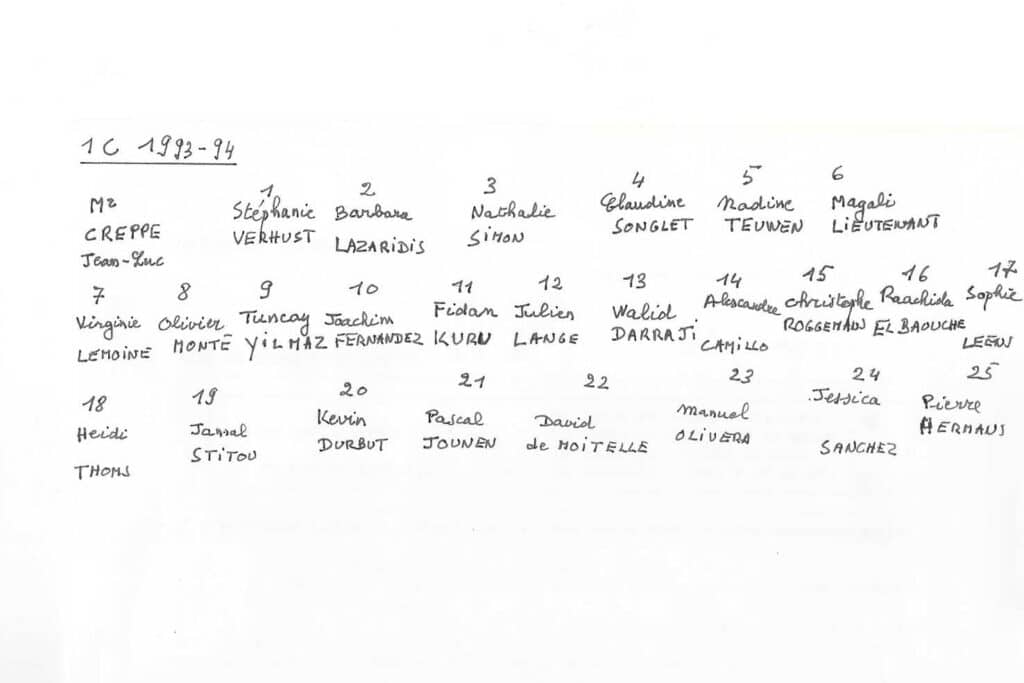 1C 1993-94
1 2 3 4 5 6
Mr Stéphanie Barbara Nathalie Claudine Nadine Magali
CREPPE VERHUST LAZARIDIS SIMON SONGLET TEUWEN LIEUTENANT
Jean-Luc
7 8 9 10 11 12 13 14 15 16 17
Virginie Olivier Tuncay Joachim Fidan Julien Walid Alexandre Christophe Raachida Sophie
LEMOINE MONTE YILMAZ FERNANDEZ KURU LANGE DARRAJi CAMILLO ROGGEMAN EL BAOUCHE LEEUW
18 19 20 21 22 23 24 25
Heidi Jamal Kevin Pascal David Manuel Jessica Pierre
THOMS STITOU DURBUT JOUNEN de MOITELLE OLIVERA SANCHEZ HERMAUS